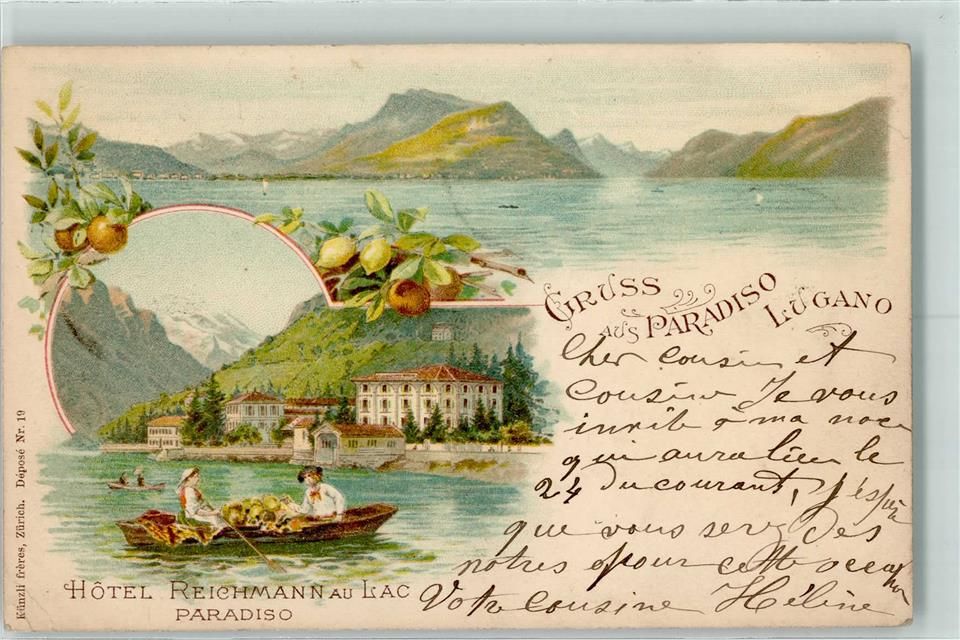 GRUSS
AUS PARADISO
LUGANO
Cher cousin et
Cousine Je vous
invite a ma noce
qui aura lieu le
24 du courant, j'espère
que vous serez des
notres pour cette occasion
Votre cousine Héline
HÔTEL REICHMANN AU LAC
PARADISO
Künzli frères, Zürich. Déposé Nr. 19